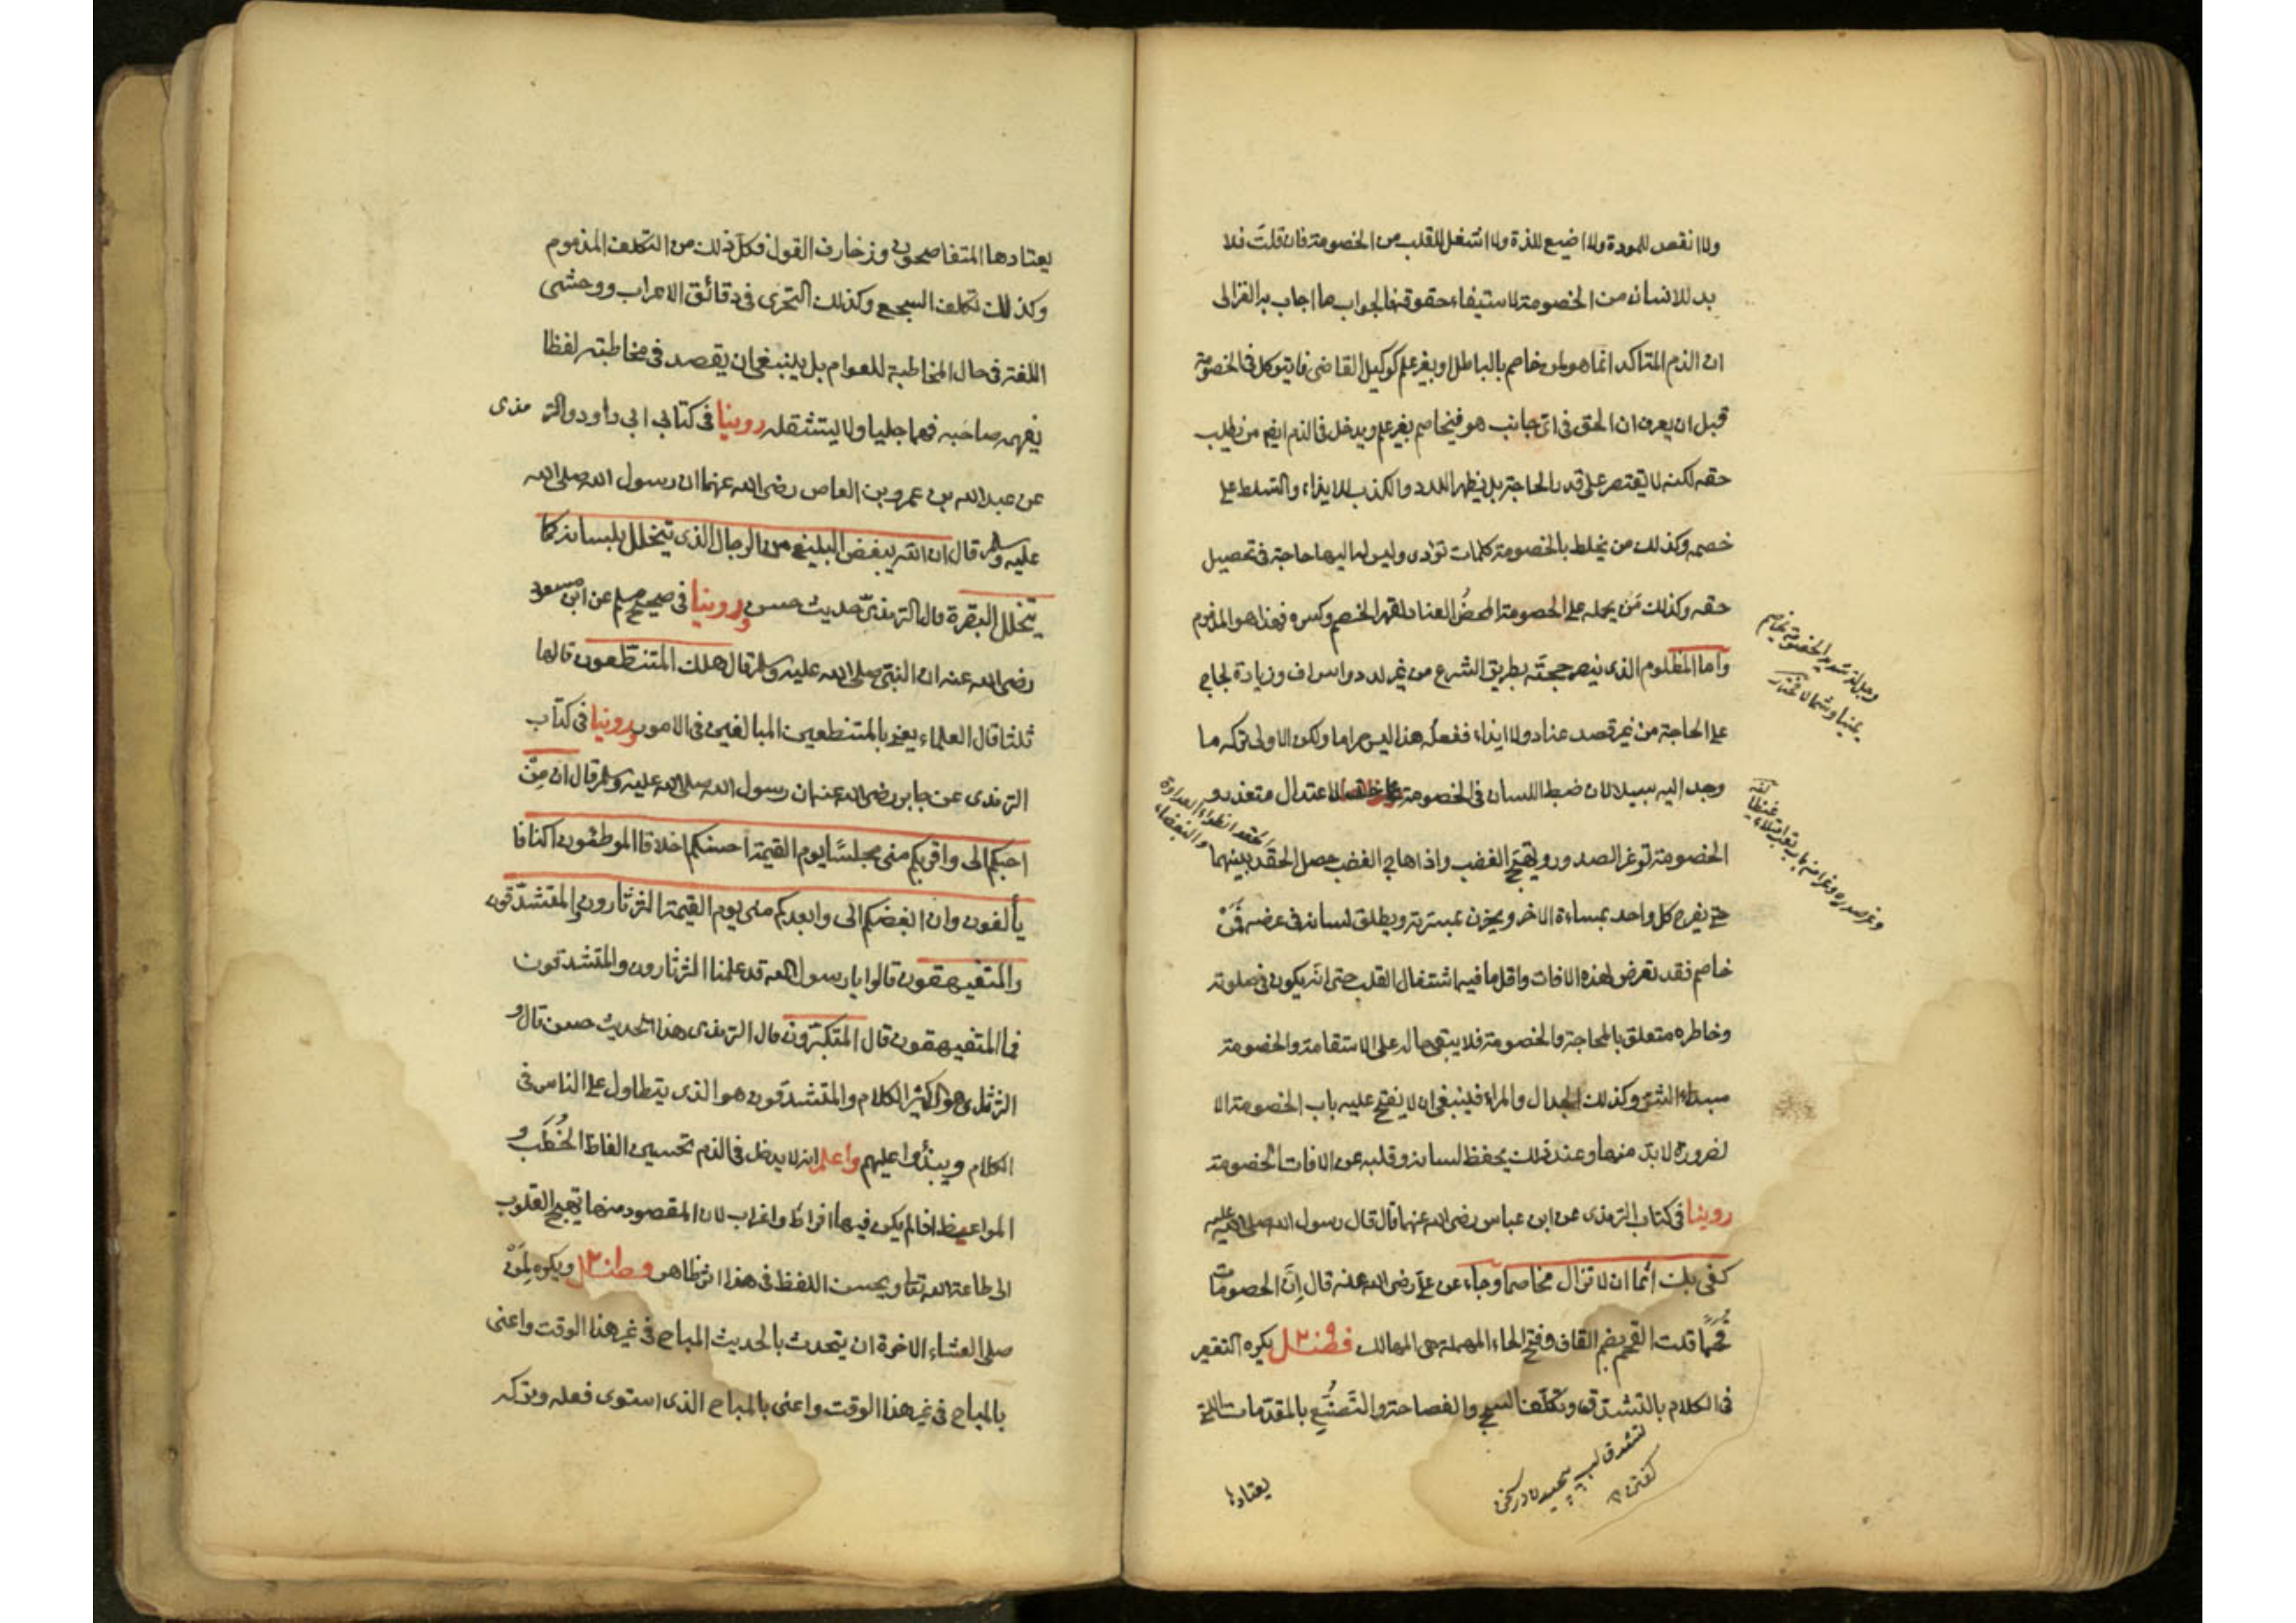 ولا انقص للمودة ولا اضيع للذة ولا اشغل للقلب من الخصومة فان قلت فلا
بد للانسان من الخصومة لاستيفاء حقوقه فالجواب ما اجاب به الغزالى
ان الذم المتاكد انما هو لمن خاصم بالباطل او بغير علم كوكيل القاضى فانه يتوكل فى الخصومة
قبل ان يعرف ان الحق فى اى جانب هو فيخاصم بغير علم ويدخل فى الذم ايضا من يطلب
حقه لكنه لا يقتصر على قدر الحاجة بل يظهر اللدد والكذب للايذاء والتسلط على
خصمه وكذلك من يخلط بالخصومة كلمات تؤذى وليس له اليها حاجة فى تحصيل
حقه وكذلك مَن يحمله على الخصومة المحضُ العناد لقهر الخصم وكسره فهذا هو المذموم
واما المظلوم الذى ينصر حجتَه بطريق الشرع من غير لدد واسراف وزيادة لجاج
على الحاجة من غير قصد عناد ولا ايذاء ففعلُه هذا ليس حراما ولكن الاولى تركه ما
وجد اليه سبيلا لان ضبط اللسان فى الخصومة على حد الاعتدال متعذر و
الخصومة توغر الصدور وتهيّج الغضب واذا هاج الغضب حصل الحقد بينهما
حتى يفرح كل واحد بمساءة الاخر ويحزن بمسرته ويطلق لسانه فى عرضه فَمَنْ
خاصم فقد تعرض لهذه الافات واقل ما فيه اشتغال القلب حتى انّه يكون فى صلوته
وخاطره متعلق بالمحاجة والخصومة فلا يبقى حاله على الاستقامة والخصومة
مبداء الشرّ وكذلك الجدال والمراء فينبغى ان لا يفتح عليه باب الخصومة الا
لضرورة لا بدّ منها وعند ذلك يحفظ لسانه وقلبه عن الافات الخصومة
روينا فى كتاب الترمذى عن ابن عباس رضى الله عنهما قال قال رسول الله صلى الله عليه
كفى بك اثما ان لا تزال مخاصما وجاء عن على رضى الله عنه قال اِنّ الخصومات
قُحَمًا قلت القحم بضم القاف وفتح الحاء المهملة هى المهالك فصل يكره التقعير
فى الكلام بالتشدّق وتكلّف السجع والفصاحة والتَّصنُّع بالمقدّمات التى
يعتادها
يعتادها المتفاصحون وزخارف القول فكلّ ذلك من التكلف المذموم
وكذلك تكلف السجع وكذلك التحرّى فى دقائق الاعراب ووحشى
اللغة فى حال المخاطبة للعوام بل ينبغى ان يقصد فى مخاطبته لفظا
يفهمه صاحبه فهما جليا ولا يستثقله روينا فى كتابى ابى داود والترمذى
عن عبد الله بن عمرو بن العاص رضى الله عنهما ان رسول الله صلى الله
عليه وسلم قال ان الله يبغض البليغ من الرجال الذى يتخلل بلسانه كما
يتخلل البقرة قال الترمذىّ حديث حسن وروينا فى صحيح مسلم عن ابن مسعود
رضى الله عنه ان النبىّ صلى الله عليه وسلم قال هلك المتنطّعون قالها
ثلثا قال العلماء يعنى بالمتنطعين المبالغين فى الامور وروينا فى كتاب
الترمذى عن جابر رضى الله عنه ان رسول الله صلى الله عليه وسلم قال ان مِنْ
احبّكم الى واقربكم منى مجلسًا يوم القيمة احسنكم اخلاقا الموطئون اكنافا
يألفون وان ابغضكم الى وابعدكم منى يوم القيمة الثرثارون والمتشدّقون
والمتفيهقون قالوا يا رسول الله قد علمنا الثرثارون والمتشدقون
فما المتفيهقون قال المتكبّرون قال الترمذى هذا حديث حسن قال و
الثرثار هو الكثير الكلام والمتشدّقون هو الذى يتطاول على الناس فى
الكلام ويبذُوا عليهم واعلم انه لا يدخل فى الذم تحسين الفاظ الخُطَب و
المواعيظ اذا لم يكن فيها افراط واغراب لان المقصود منها تهييج القلوب
الى طاعة الله تعا ويحسن اللفظ فى هذا اثر ظاهر فصل ويكره لِمَنْ
صلى العشاء الاخرة ان يتحدث بالحديث المباح فى غير هذا الوقت واعنى
بالمباح فى غير هذا الوقت واعنى بالمباح الذى استوى فعله وتركه